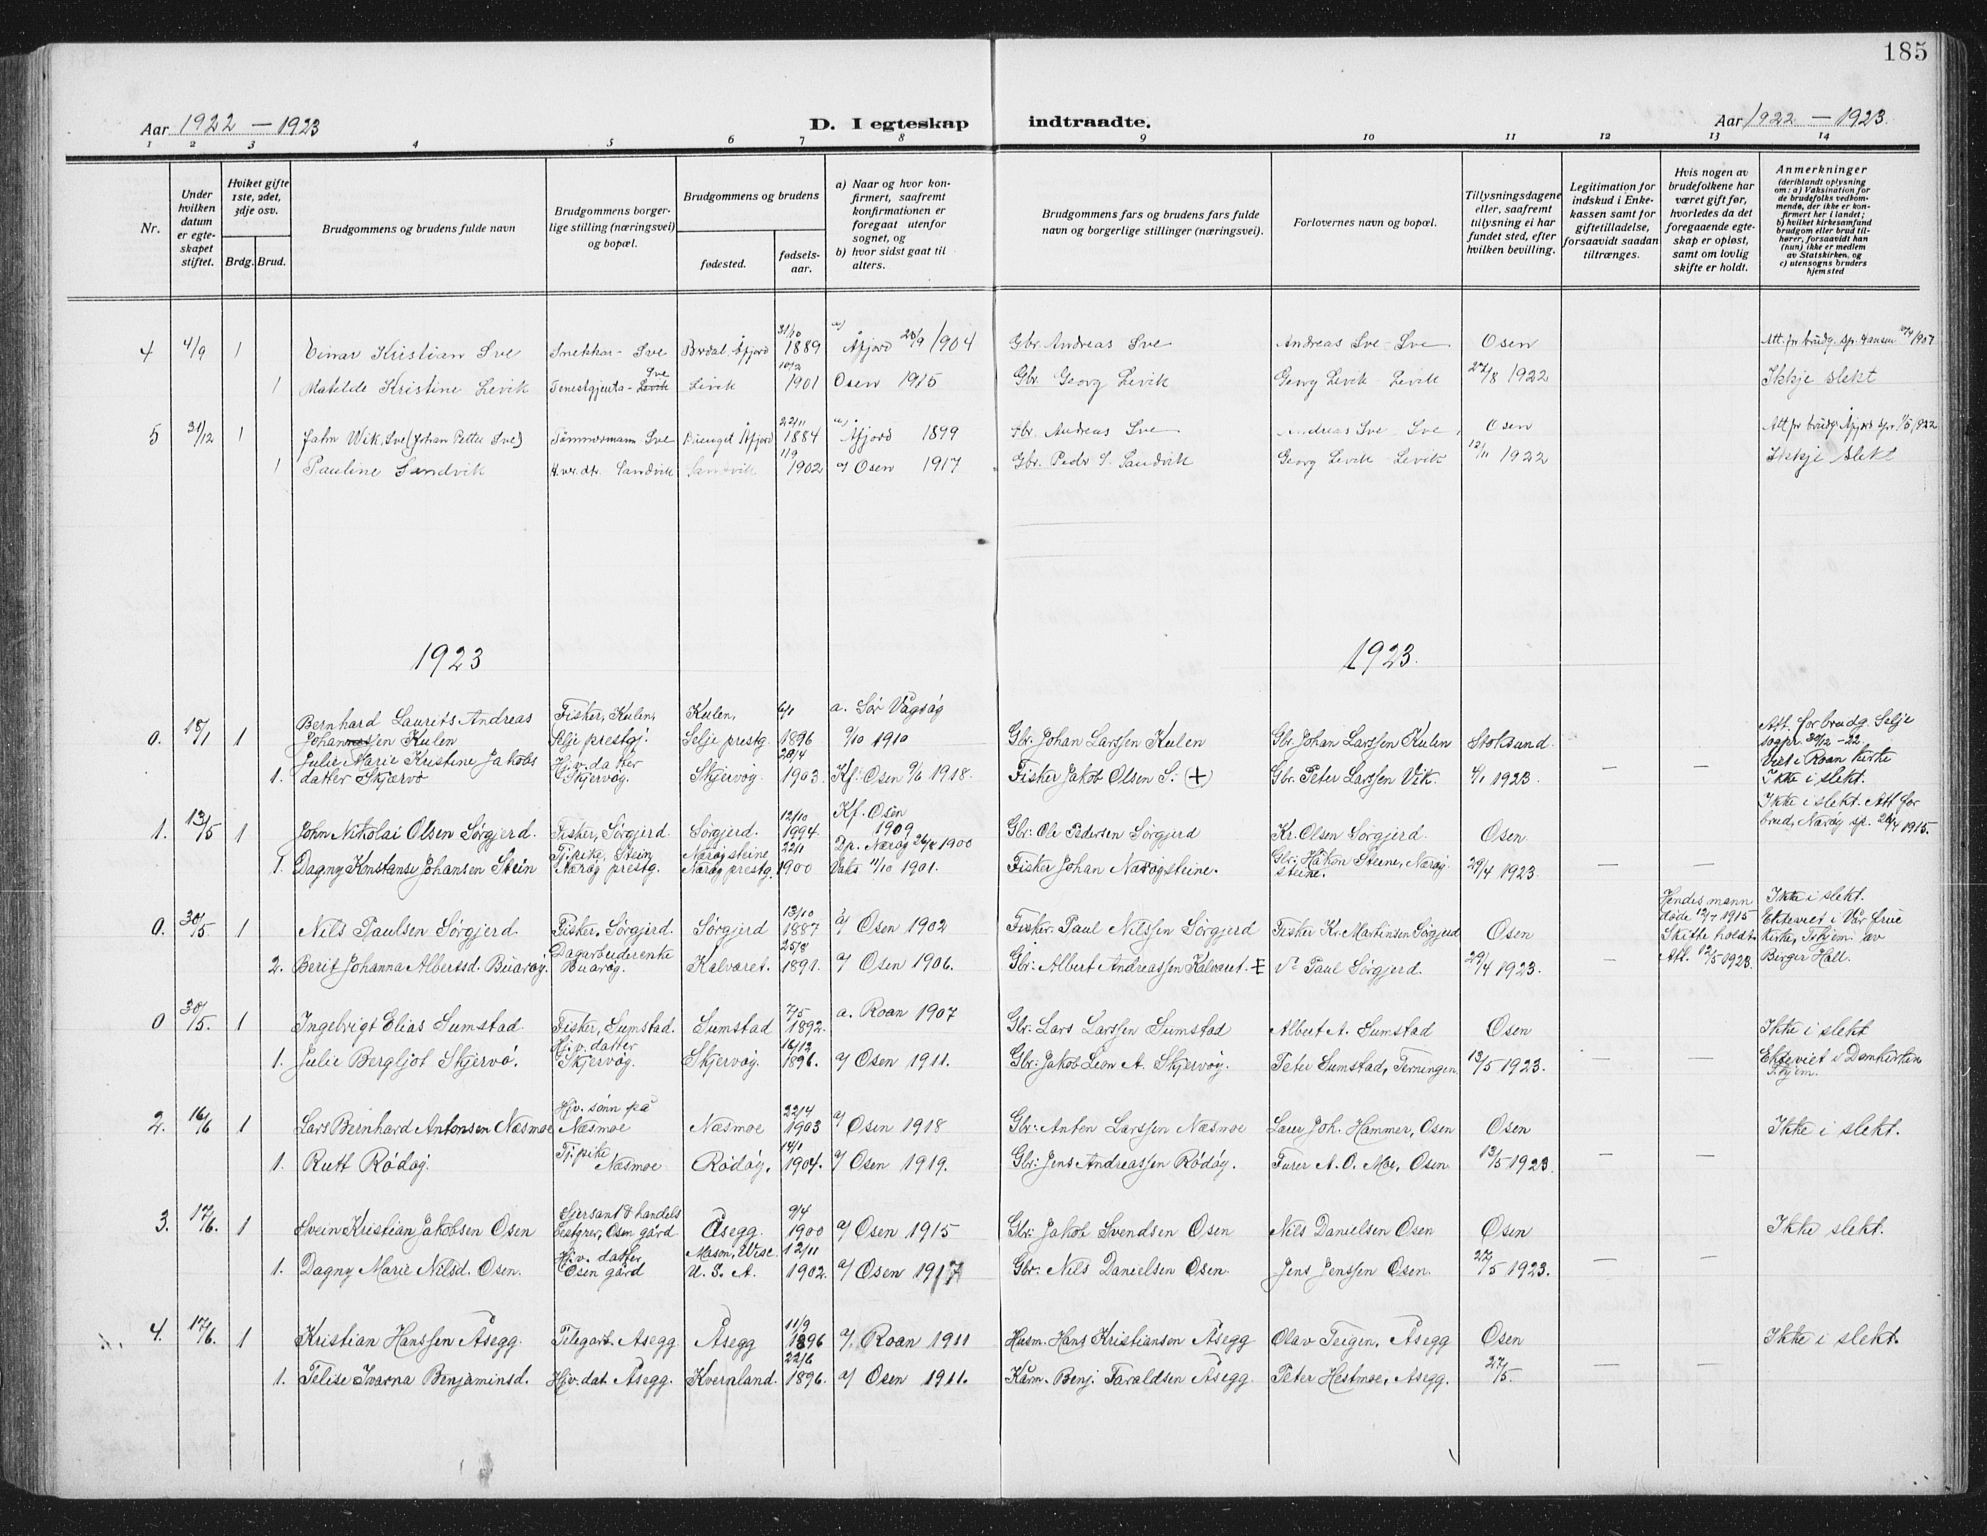 185
Aar 1922 – 1923
D. I egteskap indtraadte.
Aar 1922 – 1923.
1 2 3 4 5 6 7 8 9 10 11 12 13 14
Nr.
Under hvilken datum er egteskapet stiftet.
Hviket gifte 1ste, 2det, 3dje osv.
Brdg. Brud.
Brudgommens og brudens fulde navn
Brudgommens borgerlige stilling (næringsvei) og bopæl.
Brudgommens og brudens
fødested.
fødselsaar.
a) Naar og hvor konfirmert, saafremt konfirmationen er foregaat utenfor sognet, og
b) hvor sidst gaat til alters.
Brudgommens fars og brudens fars fulde navn og borgerlige stillinger (næringsvei).
Forlovernes navn og bopæl.
Tillysningsdagene eller, saafremt tillysning ei har fundet sted, efter hvilken bevilling.
Legitimation for indskud i Enkekassen samt for giftetilladelse, forsaavidt saadan tiltrænges.
Hvis nogen av brudefolkene har været gift før, hvorledes da det foregaaende egteskap er opløst, samt om lovlig skifte er holdt.
Anmerkninger
(deriblandt oplysning om: a) Vaksination for de brudefolks vedkommende, der ikke er konfirmert her i landet; b) hvilket kirkesamfund brudgom eller brud tilhører, forsaavidt han (hun) ikke er medlem av Statskirken, og c) utensogns bruders hjemsted
4 4/9 1 Einar Kristian Sve Snekkar – Sve Åfjord 31/10 1889 a) Åfjord 1904 Gbr. Andreas Sve Andreas Sve – Sve Osen Att. fr brudg. spr. Hansen 1907
1 Matilde Kristine Levik Tenestgjenta – Levik Sve Levik 10/2 1901 Osen 1915 Gbr. Georg Levik Georg Levik – Levik 27/8 1922 Ikkje slekt
5 31/12 1 Jahn Wik, Sve (Johan Petter Sve) Tømmermann Sve Åfjord 22/11 1884 Åfjord 1899 Gbr. Andreas Sve Andreas Sve Sve Osen Att fr brudg. Åfjord spr. 1922
1 Pauline Sandvik Sandvik Sandvik 11/9 1902 a) Osen 1917 Gbr. Peder S. Sandvik Georg Levik – Levik 12/11 1922 Ikkje slekt
1923 1923.
0. 18/1 1 Bernhard Laurits Andreas Johanssen Kulen Fisker, Kulen, Selje prestgj. Kulen, Selje prestg. 6/1 1896 a. Sør Vågsøy 9/10 1910 Gbr. Johan Larssen Kulen Gbr. Johan Larssen Kulen Stoksund Att. for brudg. Selje sogpr. 30/12 – 22. Viet i Roan kirke
1. Julie Marie Kristine Jakobsdatter Skjærvø Hj.v. datter Skjervøy. Skjervøy. 29/4 1903. Kf. Osen 9/6 1918. Fisker Jakob Olsen S. (+) Gbr. Peter Larssen Vik. 4/1 1923. – – Ikke i slekt.
1. 13/5 1 John Nikolai Olsen Sørgjerd. Fisker, Sørgjerd. Sørgjerd. 12/10 1994. Kf. Osen 1909 Gbr. Ole Pedersen Sørgjerd Kr. Olsen Sørgjerd. Osen Ikke i slekt. Att for brud, Nærøy sp. 26/4 1915.
1. Dagny Konstanse Johansen Stein Tj.pike, Stein Nærøy prestg. Nærøysteine Nærøy prestg. 22/11 1900 Dp. Nærøy 26/8 1900 Vaks 11/10 1901. Fisker Johan Nærøysteine. Gbr. Håkon Steine, Nærøysteine. 29/4 1923. – –
0. 30/5 1 Nils Paulsen Sørgjerd. Fisker, Sørgjerd. Sørgjerd 13/10 1887 a) Osen 1902 Fisker Paul Nilssen Sørgjerd Fisker Kr. Martinsen Sørgjerd Osen Hendes mann døde 12/7 1915 Skifte holdt. Att. 12/5 1923. Ikke i slekt. Ekteviet i Vår Frue kirke, Tr.hjem av Birger Hall.
2. Berit Johanna Albertsd. Buarøy. Dagarbeiderenke Buarøy. Kalvaret. 25/8 1891. a) Osen 1906. Gbr. Albert Andreassen Kalvaret. Paul Sørgjerd. 29/4 1923. –
0 30/5. 1 Ingebrigt Elias Sumstad Fisker, Sumstad. Sumstad 7/5 1892. a. Roan 1907 Gbr. Lars Larssen Sumstad Albert A. Sumstad Osen Ikke i slekt
1. Julie Bergljot Skjervø. Hj.v. datter Skjervøy. Skjervøy. 16/12 1896. a) Osen 1911. Gbr. Jakob Leon A. Skjervøy. Peter Sumstad, Terningen 13/5 1923. – – Ekteviet i Domkirken Tr.hjem.
2. 16/6 1 Lars Bernhard Antonsen Næsmoe Hj.v. sønn på Næsmoe Næsmoe 22/4 1903 a) Osen 1918 Gbr. Anton Larssen Næsmoe Joh. Hammer, Osen Osen Ikke i slekt.
1. Rutt Rødøy. Tj.pike Næsmoe Rødøy. 14/1 1904. a) Osen 1919. Gbr. Jens Andreassen Rødøy. A. O. Moe, Osen 13/5 1923 – –
3. 17/6. 1 Svein Kristian Jakobsen Osen Sjersant & handelsbestyrer, Osen gård Åsegg. 9/4 1900 a) Osen 1915 Gbr. Jakob Svendsen Osen Nils Danielsen Osen Osen Ikke i slekt.
1. Dagny Marie Nilsd. Osen. Hj.v. datter Osen gård Mason, Wisc. U. S. A. 12/11 1902. a) Osen 1917 Gbr. Nils Danielsen Osen. Jens Jenssen Osen. 27/5 1923. – –
4. 17/6. 1 Kristian Hanssen Åsegg. Telegarb. Åsegg Åsegg 11/9 1896 a) Roan 1911 Husm. Hans Kristianson Åsegg Olav Teigen, Åsegg Osen Ikke i slekt.
1. Telise Ivarna Benjaminsd. Hj.v. dat. Åsegg. Kvernland. 22/6 1896. a) Osen 1911. Benj. Taraldsen Åsegg. Peter Hestmoe, Åsegg. 27/5. – –